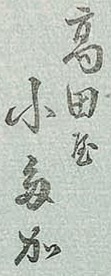 高田屋
小多加